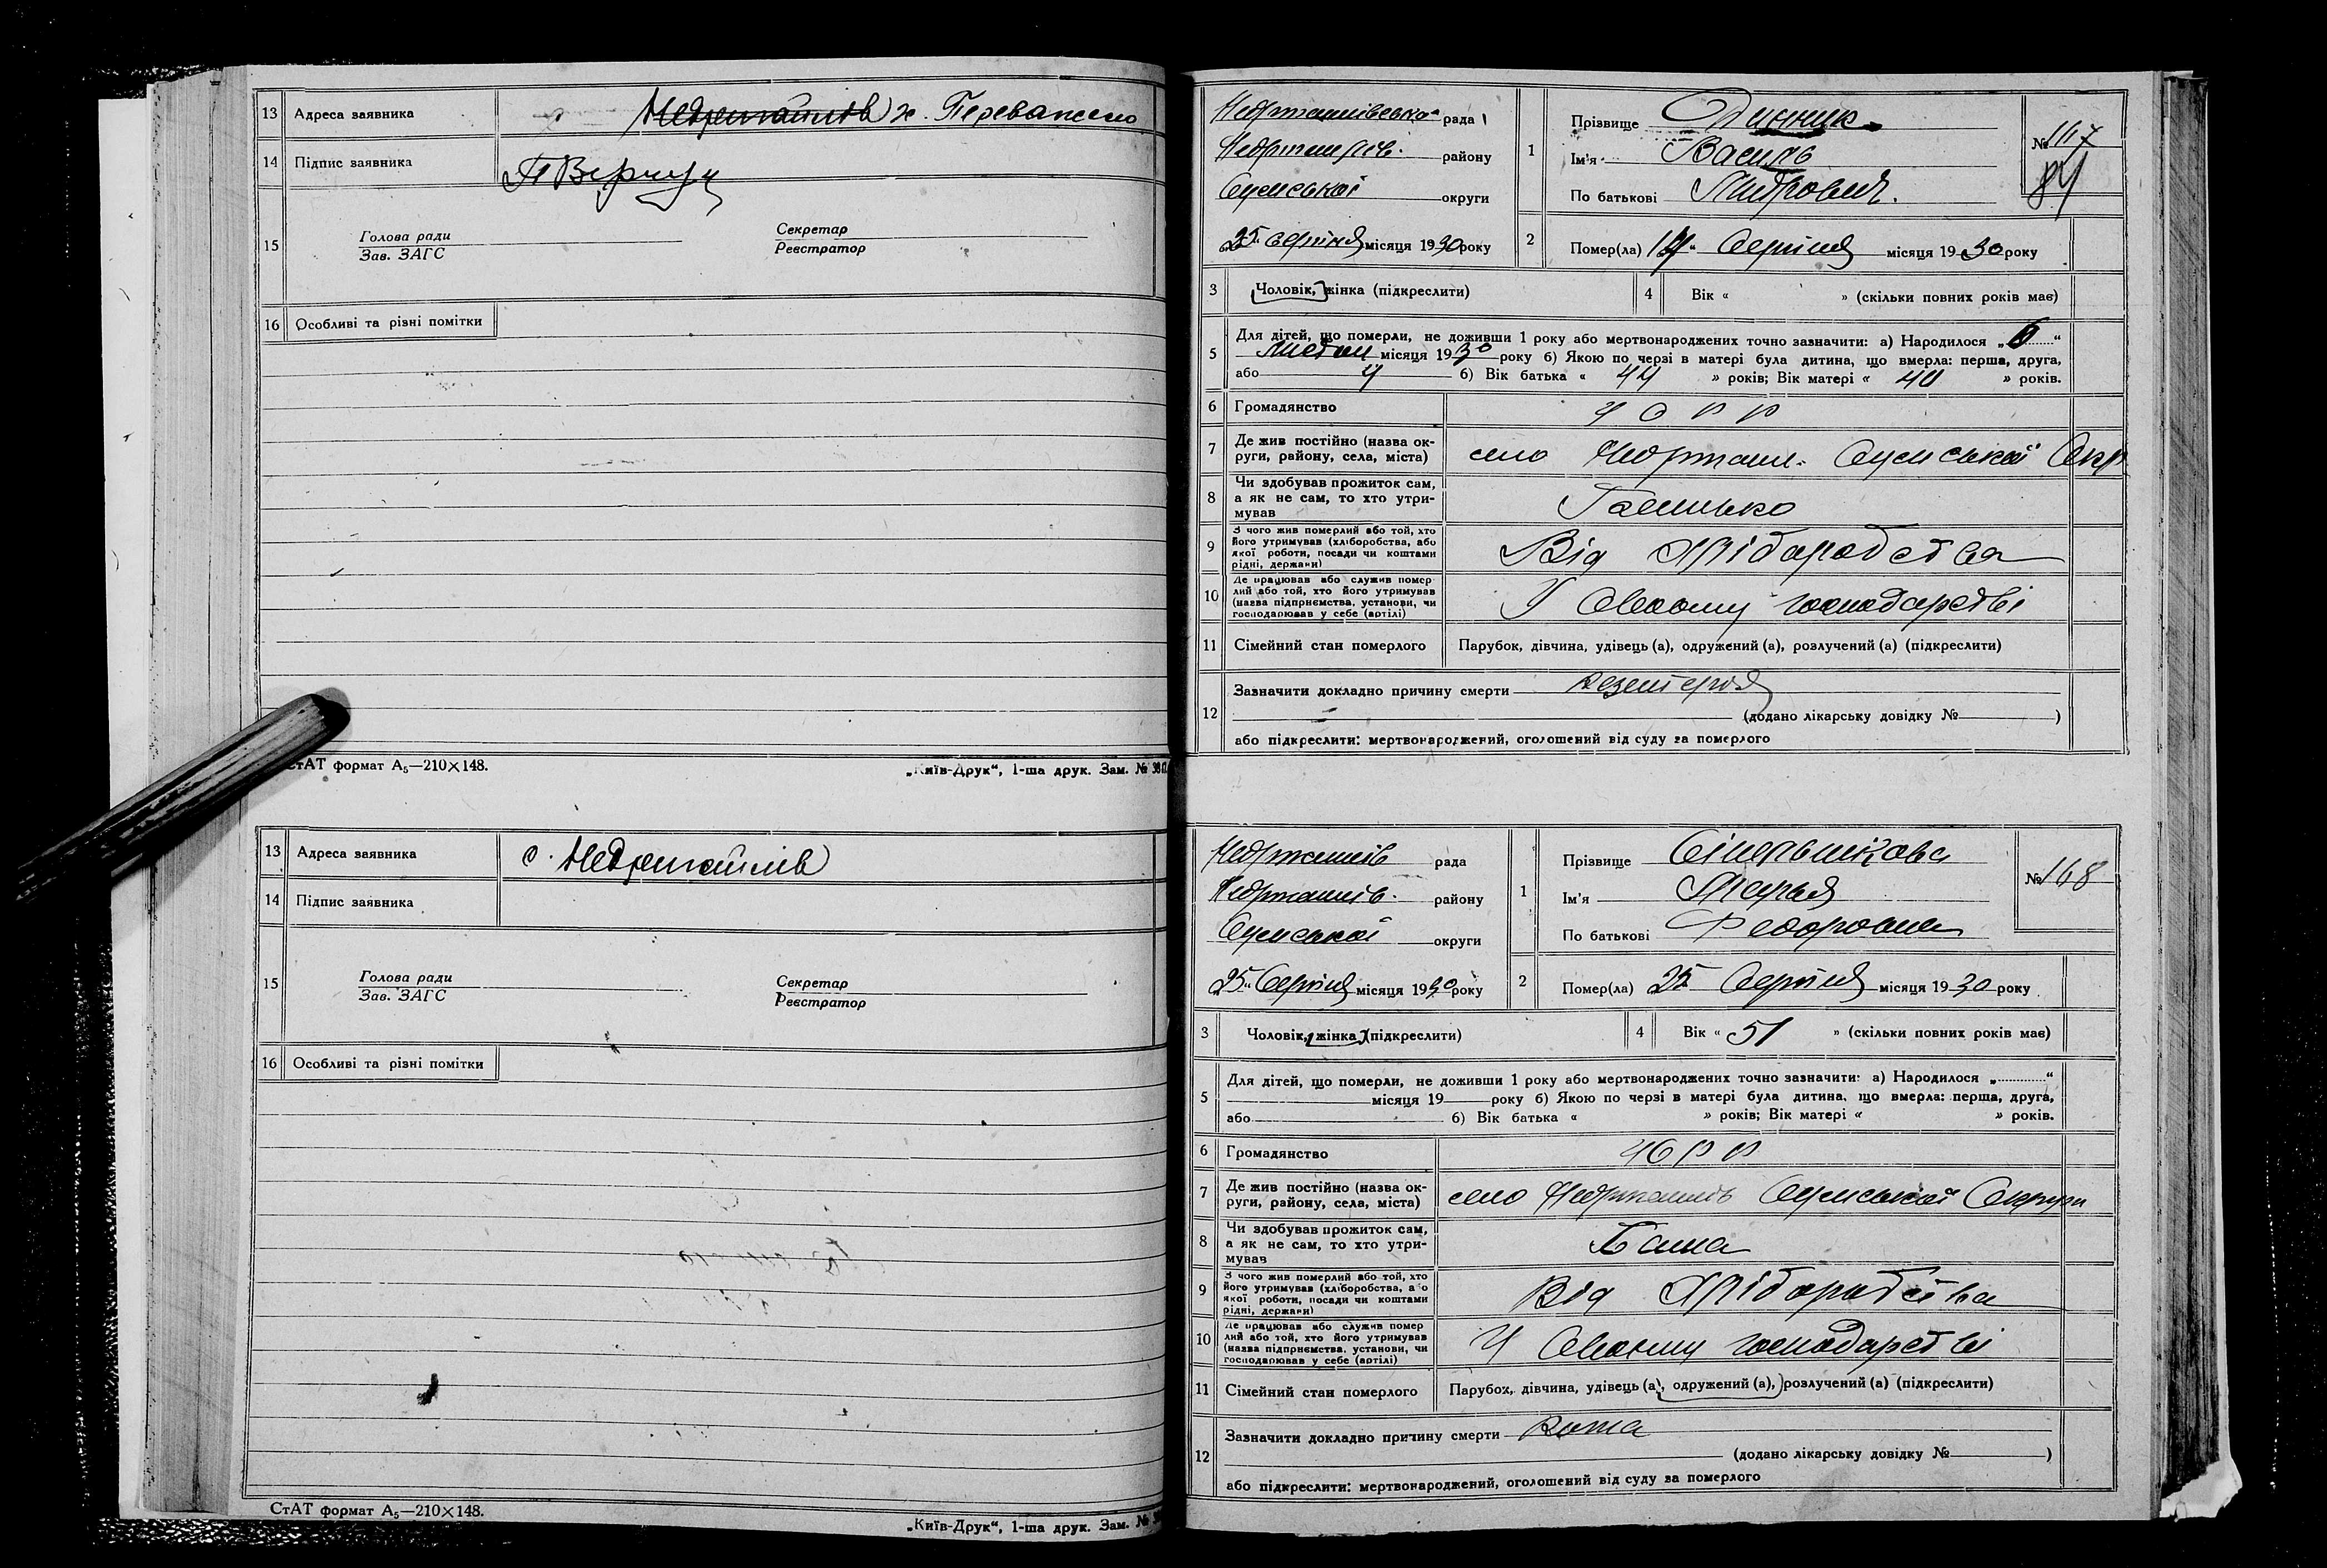 13 Адреса заявника Недригайлів х. Переважено
14 Підпис заявника
15 Голова ради
Зав. ЗАГС
Секретар
Реєстратор
16 Особливі та різні помітки
СтАТ формат А₅—210×148.
„Київ-Друк“, 1-ша друк. Зам. №
13 Адреса заявника с. Недригайлів
14 Підпис заявника
15 Голова ради
Зав. ЗАГС
Секретар
Реєстратор
16 Особливі та різні помітки
СтАТ формат А₅—210×148.
„Київ-Друк“, 1-ша друк. Зам. №
рада
району
Сумської округи
25 серпня місяця 1930 року
1 Прізвище Динник
Ім'я Василь
По батькові
№ 167
84
2 Помер(ла) Серпня місяця 1930 року
3 Чоловік, жінка (підкреслити)
4 Вік « » (скільки повних років має)
5 Для дітей, що померли, не доживши 1 року або мертвонароджених точно зазначити: а) Народилося „6“
місяця 1930 року б) Якою по черзі в матері була дитина, що вмерла: перша, друга,
або 4 б) Вік батька « 44 » років; Вік матері « 40 » років.
6 Громадянство УСРР
7 Де жив постійно (назва ок-
руги, району, села, міста) село Недригайл. Сумської Окр
8 Чи здобував прожиток сам,
а як не сам, то хто утри-
мував Батько
9 З чого жив померлий або той, хто
його утримував (хліборобства, або
якої роботи, посади чи коштами
рідні, держави) Від хліборобства
10 Де працював або служив помер
лий або той, хто його утримував
(назва підприємства, установи, чи
господарював у себе (артілі) У своєму господарстві
11 Сімейний стан померлого Парубок, дівчина, удівець (а), одружений (а), розлучений (а) (підкреслити)
12 Зазначити докладно причину смерти дезентерія
(додано лікарську довідку № )
або підкреслити: мертвонароджений, оголошений від суду за померлого
рада
району
Сумської округи
25 Серпня місяця 1930 року
1 Прізвище Сінельнікова
Ім'я Марья
По батькові Федоровна
№ 168
2 Помер(ла) 25 Серпня місяця 1930 року
3 Чоловік, жінка (підкреслити)
4 Вік « 51 » (скільки повних років має)
5 Для дітей, що померли, не доживши 1 року або мертвонароджених точно зазначити: а) Народилося „ “
місяця 19 року б) Якою по черзі в матері була дитина, що вмерла: перша, друга,
або б) Вік батька « » років; Вік матері « » років.
6 Громадянство УСРР
7 Де жив постійно (назва ок-
руги, району, села, міста) село Недригайлів Сумської Округи
8 Чи здобував прожиток сам,
а як не сам, то хто утри-
мував Сама
9 З чого жив померлий або той, хто
його утримував (хліборобства, або
якої роботи, посади чи коштами
рідні, держави) Від хліборобства
10 Де працював або служив помер
лий або той, хто його утримував
(назва підприємства, установи, чи
господарював у себе (артілі) У своєму господарстві
11 Сімейний стан померлого Парубок, дівчина, удівець (а), одружений (а), розлучений (а) (підкреслити)
12 Зазначити докладно причину смерти
(додано лікарську довідку № )
або підкреслити: мертвонароджений, оголошений від суду за померлого